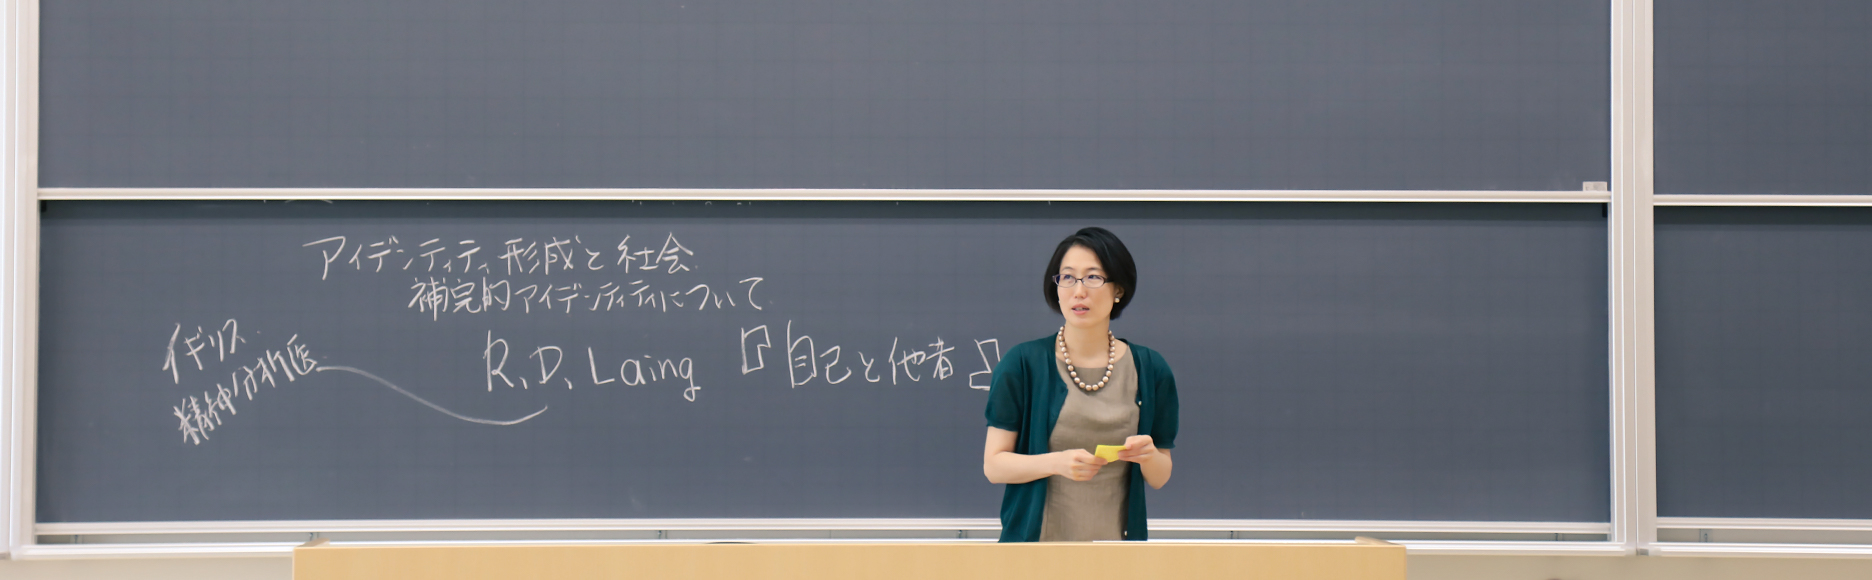 アイデンティティ形成と社会
補完的アイデンティティについて
イギリス
精神分析医
R.D.Laing 『自己と他者』